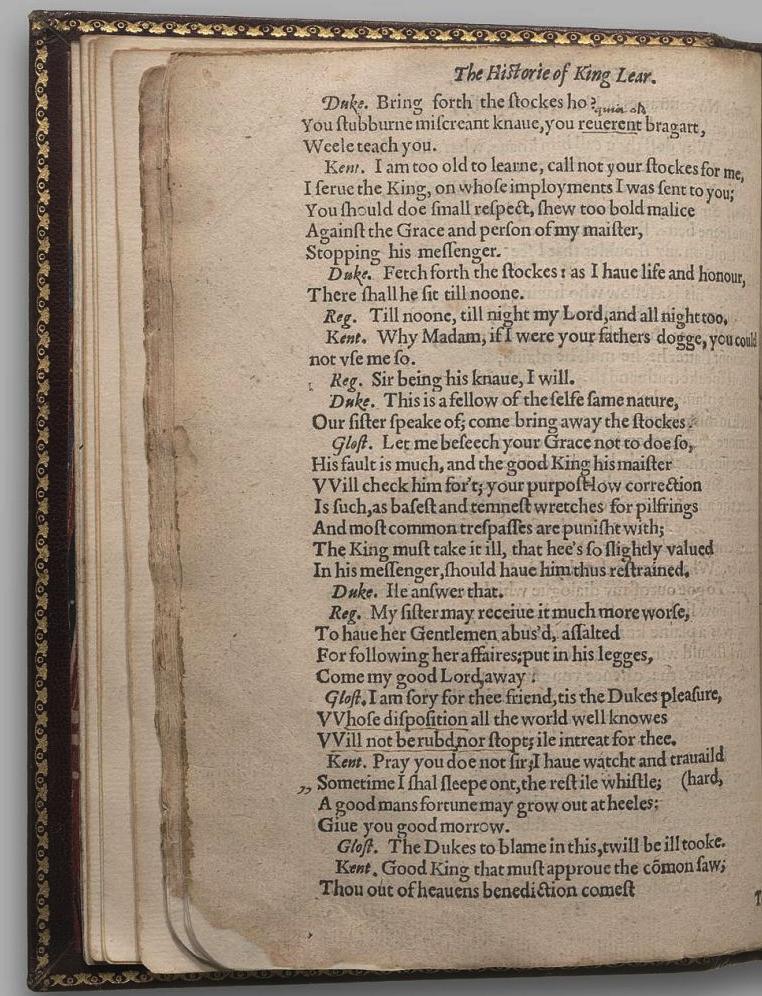 The Historie of King Lear.
Duke. Bring forth the stockes ho?
You stubburne miscreant knaue, you reuerent bragart,
Weele teach you.
Kent. I am too old to learne, call not your stockes for me,
I serue the King, on whose imployments I was sent to you;
You should doe small respect, shew too bold malice
Against the Grace and person of my maister,
Stopping his messenger.
Duke. Fetch forth the stockes: as I haue life and honour,
There shall he sit till noone.
Reg. Till noone, till night my Lord, and all night too.
Kent. Why Madam, if I were your fathers dogge, you could
not vse me so.
Reg. Sir being his knaue, I will.
Duke. This is a fellow of the selfe same nature,
Our sister speake of; come bring away the stockes.
Glost. Let me beseech your Grace not to doe so,
His fault is much, and the good King his maister
VVill check him for't; your purpost low correction
Is such, as basest and temnest wretches for pilfrings
And most common trespasses are punisht with;
The King must take it ill, that hee's so slightly valued
In his messenger, should haue him thus restrained.
Duke. Ile answer that.
Reg. My sister may receiue it much more worse,
To haue her Gentlemen abus'd, assalted
For following her affaires; put in his legges,
Come my good Lord, away:
Glost. I am sory for thee friend, tis the Dukes pleasure,
VVhose disposition all the world well knowes
VVill not be rubd nor stopt; ile intreat for thee.
Kent. Pray you doe not sir, I haue watcht and trauaild
„ Sometime I shal sleepe ont, the rest ile whistle; (hard,
A good mans fortune may grow out at heeles:
Giue you good morrow.
Glost. The Dukes to blame in this, twill be ill tooke.
Kent. Good King that must approue the cōmon saw;
Thou out of heauens benediction comest